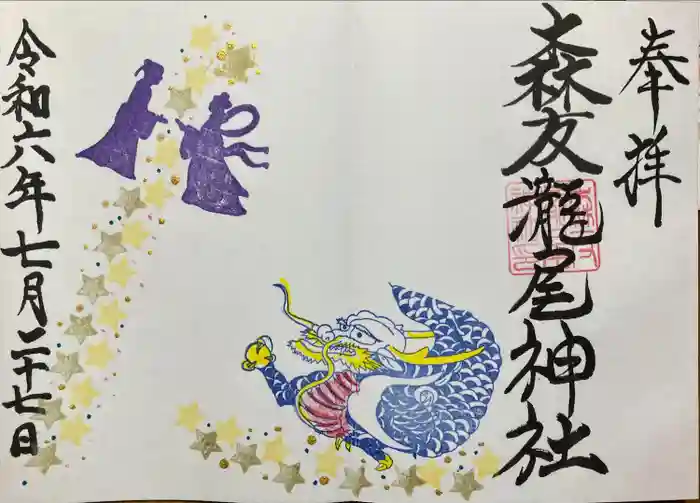 奉拝
森友瀧尾神社
令和六年七月二十七日